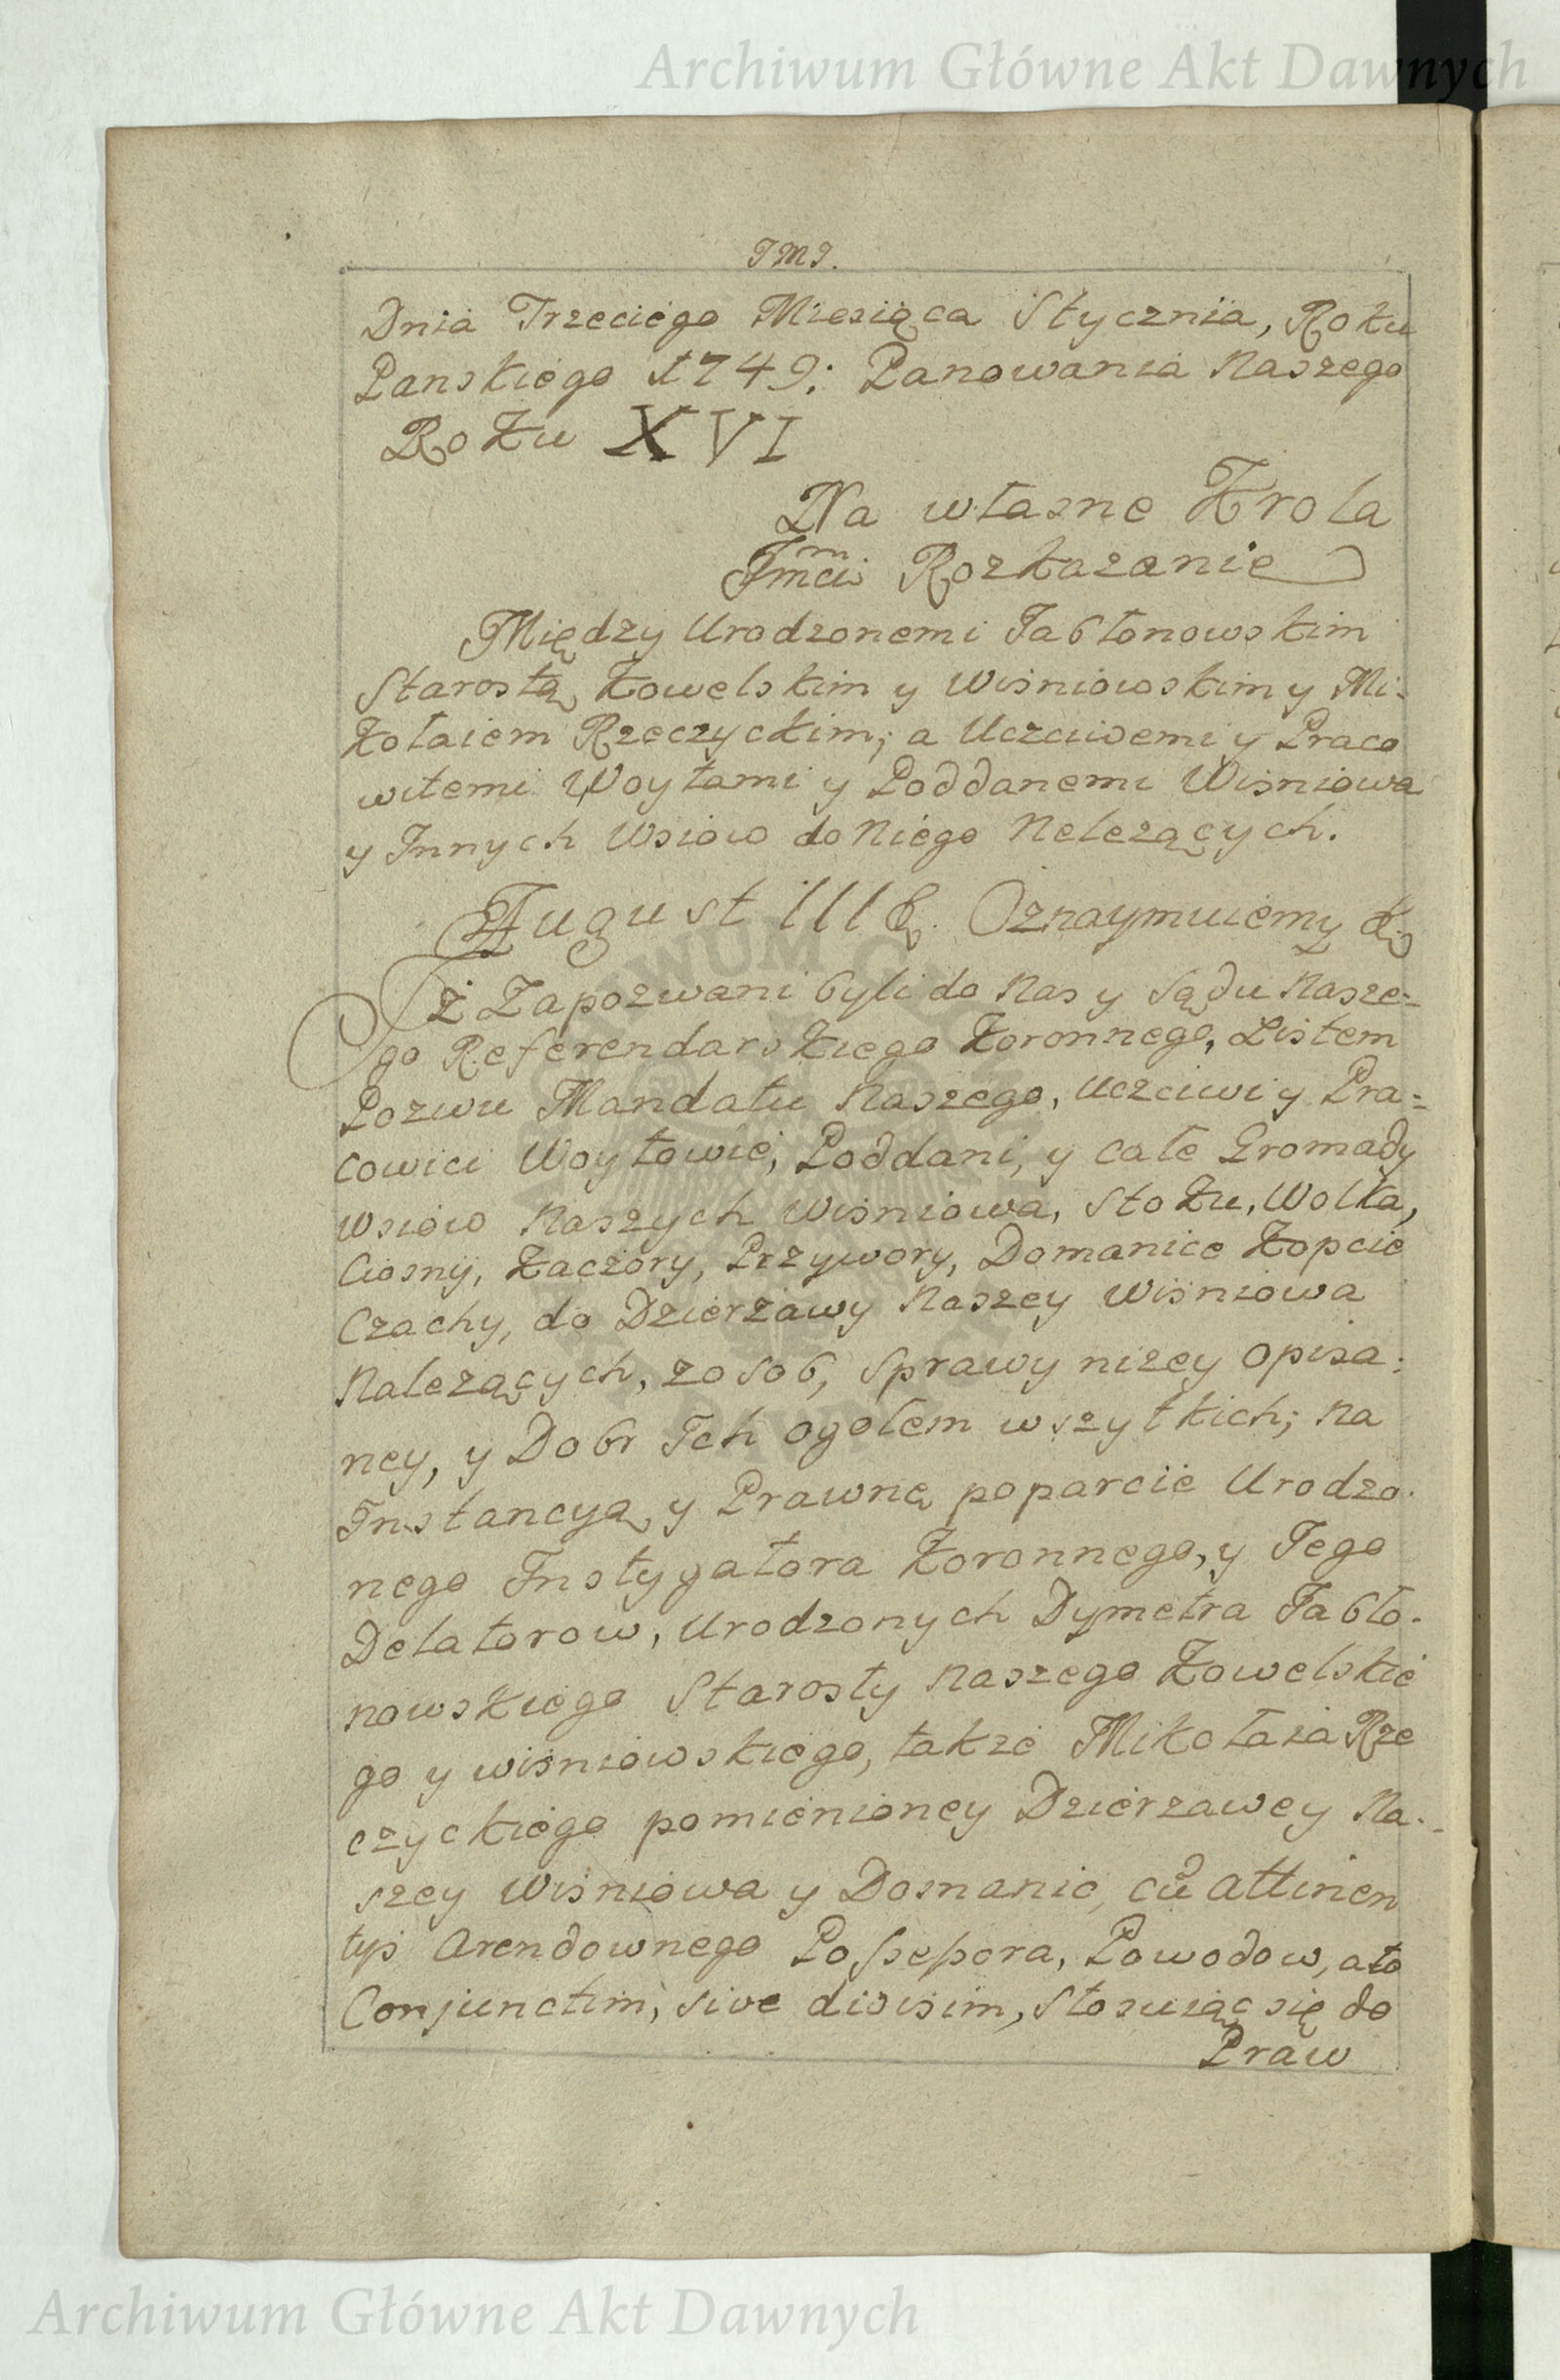 Archiwum Główne Akt Dawnych
JMJ.
Dnia Trzeciego Miesiąca Stycznia, Roku
Panskiego 1749: Panowania Naszego
Roku XVI
Na własne Krola
Jmci Rozkazanie
Między Urodzonemi Jabłonowskim
Starostą Kowelskim y Wisniowskim y Mi-
kołaiem Rzeczyckim; a Uczciwemi y Praco
witemi Woytami y Poddanemi Wisniowa
y Innych Wsiow do Niego Nelezących.
August III &. Oznaymuiemy &
Iż Zapozwani byli do Nas y Sądu Nasze-
go Referendarskiego Koronnego, Listem
Pozwu Mandatu Naszego, Uczciwi y Pra-
cowici Woytowie, Poddani, y całe Gromady
Wsiow Naszych Wisniowa, Stoku, Wolka,
Ciosny, Kaczory, Przywory, Domanice Kopcie
Czachy, do Dzierżawy Naszey Wisniowa
Nalezących, zosob, Sprawy nizey Opisa-
ney, y Dobr Ich ogołem wszytkich; Na
Instancyą y Prawną poparcie Urodzo-
nego Instygatora Koronnego, y Iego
Delatorow, Urodzonych Dymetra Jabło-
nowskiego Starosty Naszego Kowelskie
go y wisniowskiego, także Mikołaia Rze
czyckiego pomienioney Dzierzawey Na-
szey Wisniowa y Domanic, cũ attinen
tys Arendownego Possessora, Powodow, ato
Conjunctim, sive divisim, stosuiąc się do
Praw
Archiwum Główne Akt Dawnych